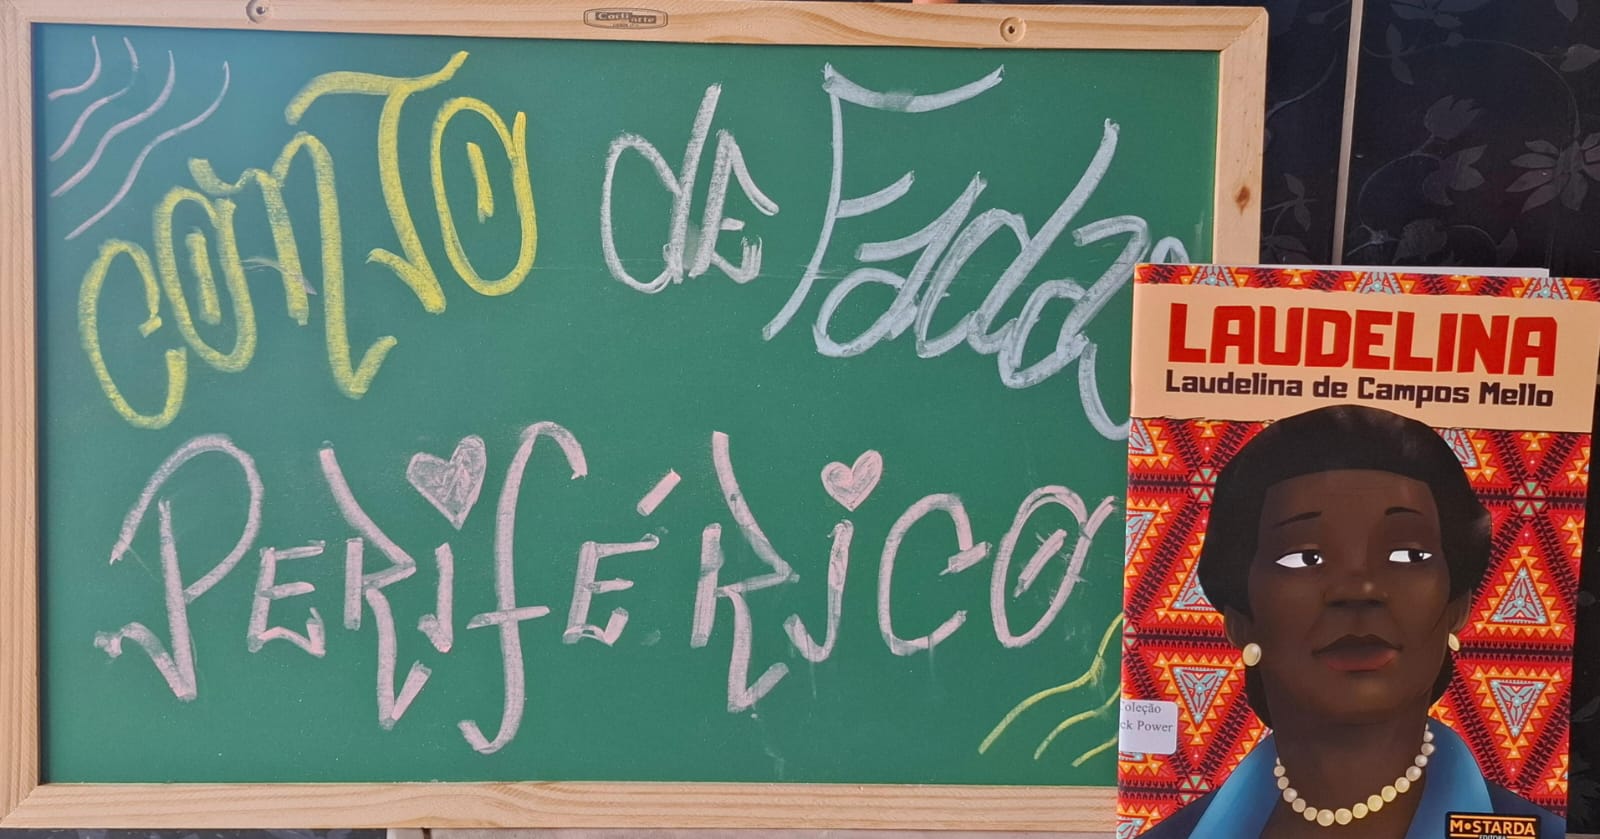 CONTO de Fadas
PERIFÉRICO
LAUDELINA
Laudelina de Campos Mello
Coleção
ck Power
MOSTARDA
EDITORA